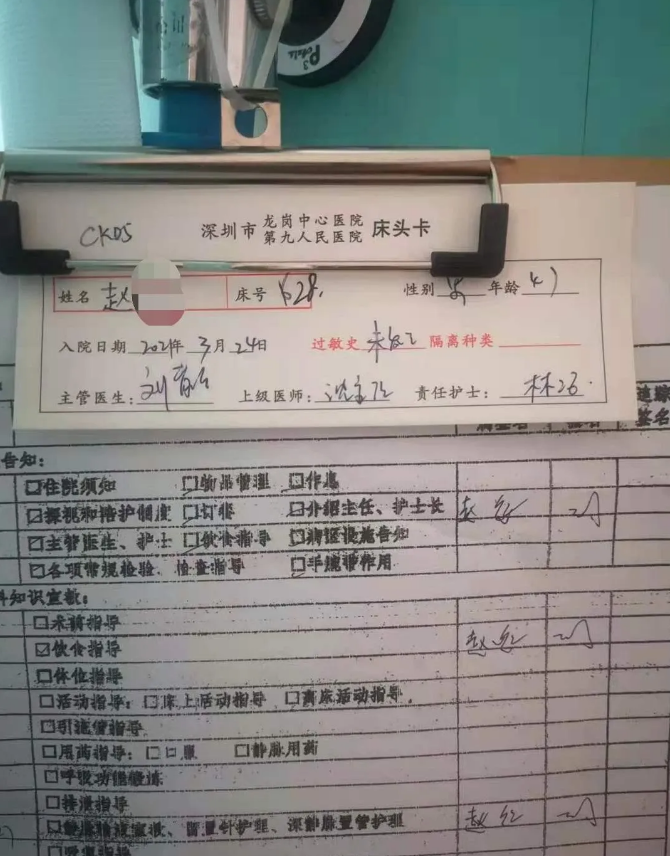 CK05
深圳市 龙岗中心医院 第九人民医院 床头卡
姓名 赵 床号 628. 性别 年龄
入院日期 2021年 3月 24日 过敏史 隔离种类
主管医生: 刘 上级医师: 沈 责任护士: 林
追踪
签名
告知:
☑住院须知 □物品管理 □作息
☑探视和陪护制度 □订餐 □介绍主任、护士长 赵
☑主管医生、护士 □饮食指导 □病区设施告知
☑各项常规检验、检查指导 □手腕带作用
科知识宣教:
□术前指导
☑饮食指导 赵
□体位指导
□活动指导: □床上活动指导 □离床活动指导.
□引流管指导
□用药指导: □口服 □静脉用药
□呼吸功能锻炼
□排泄指导
□静脉输液宣教、留置针护理、深静脉置管护理 赵